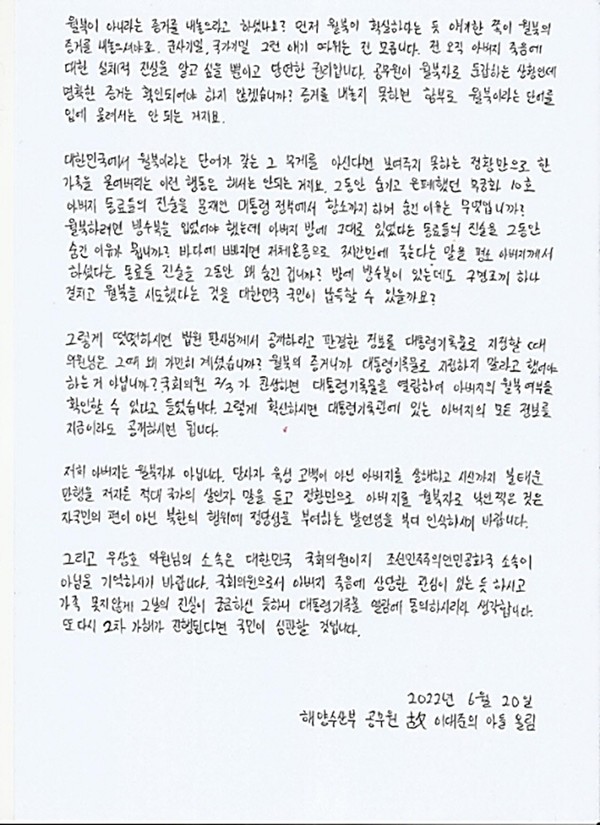 월북이 아니라는 증거를 내놓으라고 하셨나요? 먼저 월북이 확실하다는 듯 얘기한 쪽이 월북의
증거를 내놓으셔야죠. 군사기밀, 국가기밀 그런 얘기 따위는 전 모릅니다. 전 오직 아버지 죽음에
대한 실체적 진실을 알고 싶을 뿐이고 당연한 권리입니다. 공무원이 월북자로 둔갑하는 상황인데
명확한 증거는 확인되어야 하지 않겠습니까? 증거를 내놓지 못하면 함부로 월북이라는 단어를
입에 올려서는 안 되는 거지요.
대한민국에서 월북이라는 단어가 갖는 그 무게를 아신다면 보여주지 못하는 정황만으로 한
가족을 묻어버리는 이런 행동은 해서는 안되는 거지요. 그동안 숨기고 은폐했던 무궁화 10호
아버지 동료들의 진술을 문재인 대통령 정부에서 항소까지 하며 숨긴 이유는 무엇입니까?
월북하려면 방수복을 입었어야 했는데 아버지 방에 그대로 있었다는 동료들의 진술을 그동안
숨긴 이유가 뭡니까? 바다에 빠지면 저체온증으로 3시간만에 죽는다는 말을 평소 아버지께서
하셨다는 동료들 진술을 그동안 왜 숨긴 겁니까? 방에 방수복이 있는데도 구명조끼 하나
걸치고 월북을 시도했다는 것을 대한민국 국민이 납득할 수 있을까요?
그렇게 떳떳하시면 법원 판사님께서 공개하라고 판결한 정보를 대통령기록물로 지정할 때
의원님은 그때 왜 가만히 계셨습니까? 월북의 증거니까 대통령기록물로 지정하지 말라고 했어야
하는거 아닙니까? 국회의원 2/3가 찬성하면 대통령기록물을 열람하여 아버지의 월북여부를
확인할 수 있다고 들었습니다. 그렇게 확신하시면 대통령기록관에 있는 아버지의 모든 정보를
지금이라도 공개하시면 됩니다.
저희 아버지는 월북자가 아닙니다. 당사자 육성 고백이 아닌 아버지를 살해하고 시신까지 불태운
만행을 저지른 적대 국가의 살인자 말을 듣고 정황만으로 아버지를 월북자로 낙인 찍은 것은
자국민의 편이 아닌 북한의 행위에 정당성을 부여하는 발언임을 부디 인식하시기 바랍니다.
그리고 우상호 의원님의 소속은 대한민국 국회의원이지 조선민주주의인민공화국 소속이
아님을 기억하시기 바랍니다. 국회의원으로서 아버지 죽음에 상당한 관심이 있는 듯 하시고
가족 못지않게 그날의 진실이 궁금하신 듯하니 대통령기록물 열람에 동의하시리라 생각합니다.
또 다시 2차 가해가 진행된다면 국민이 심판할 것입니다.
2022년 6월 20일
해양수산부 공무원 故 이대준의 아들 올림